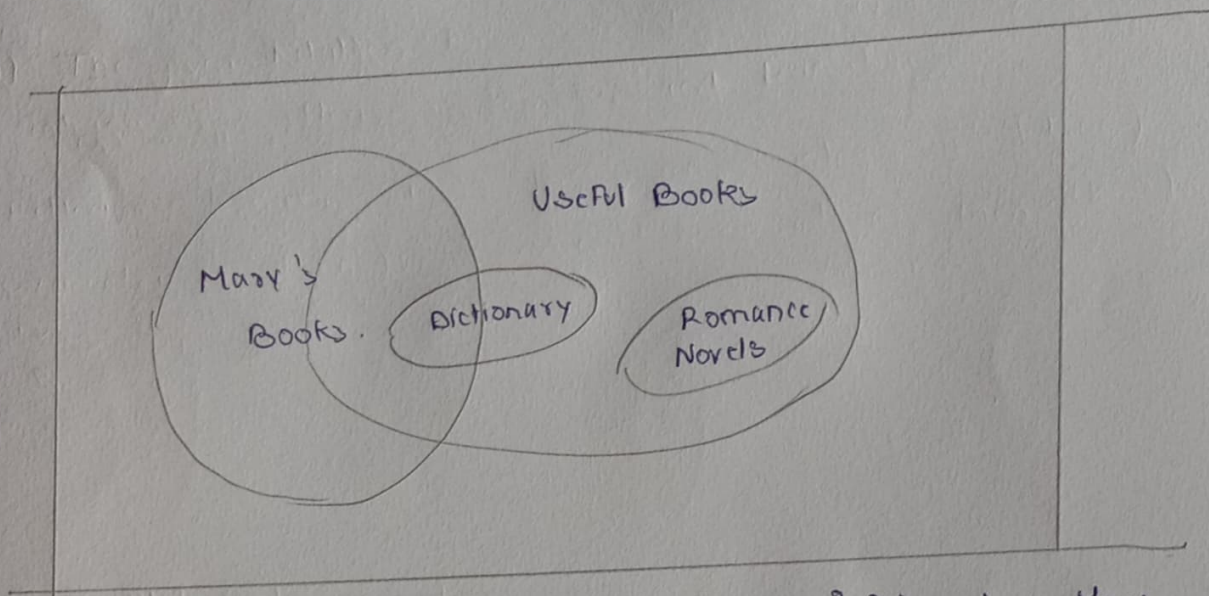 Useful Books
Mary's
Books.
Dictionary
Romance
Novels